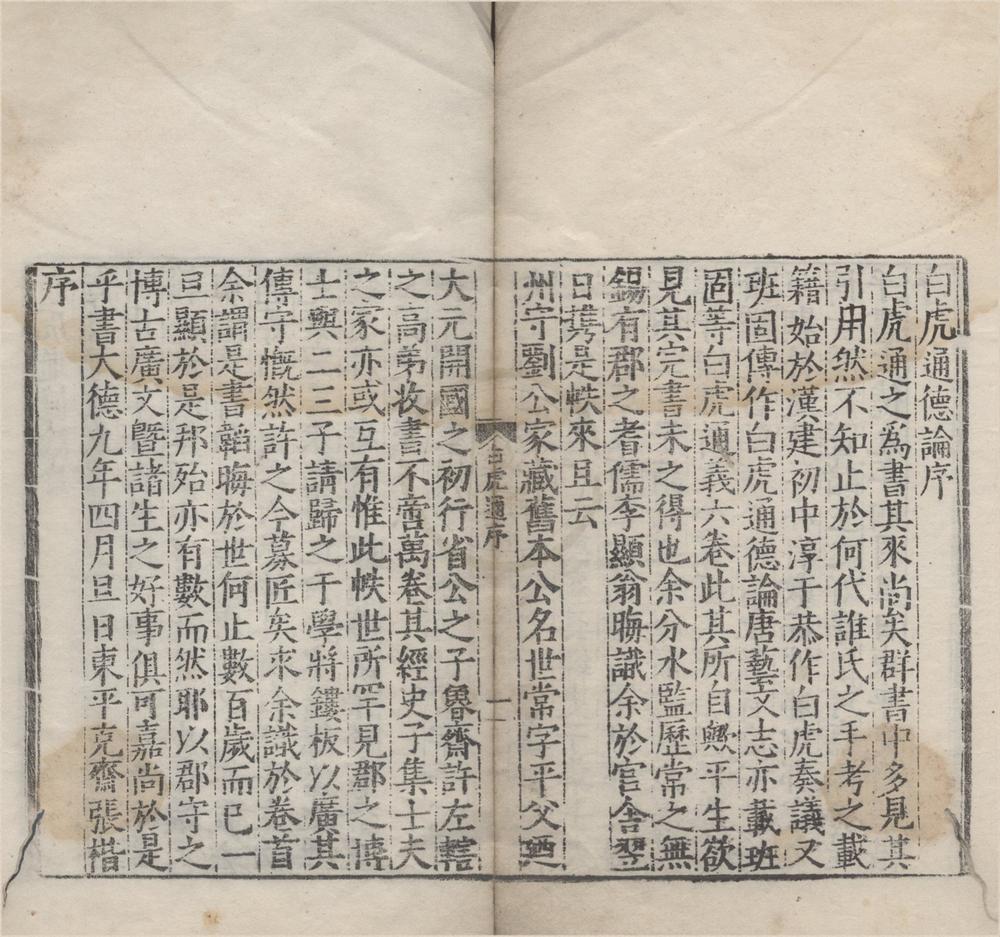 白虎通德論序
白虎通之爲書其來尚矣群書中多見其
引用然不知止於何代誰氏之手考之載
籍始於漢建初中淳于恭作白虎奏議又
班固傳作白虎通德論唐藝文志亦載班
固等白虎通義六卷此其所自歟平生欲
見其完書未之得也余分水監歷常之無
錫有郡之耆儒李顯翁晦識余於官舍翌
日携是帙來且云
州守劉公家藏舊本公名世常字平父迺
白虎通序
一
大元開國之初行省公之子魯齋許左轄
之高弟收書不啻萬卷其經史子集士夫
之家亦或互有惟此帙世所罕見郡之博
士與二三子請歸之于學將鏤板以廣其
傳守慨然許之今募匠矣求余識於卷首
余謂是書韜晦於世何止數百歲而已一
旦顯於是邦殆亦有數而然耶以郡守之
博古廣文暨諸生之好事俱可嘉尚於是
乎書大德九年四月旦日東平克齋張楷
序